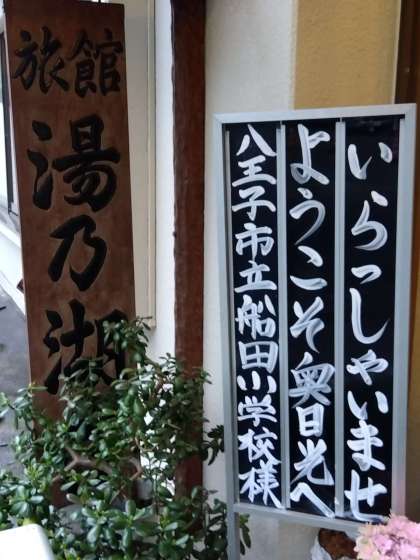 旅館
湯乃湖
いらっしゃいませ
ようこそ奥日光へ
八王子市立船田小学校様